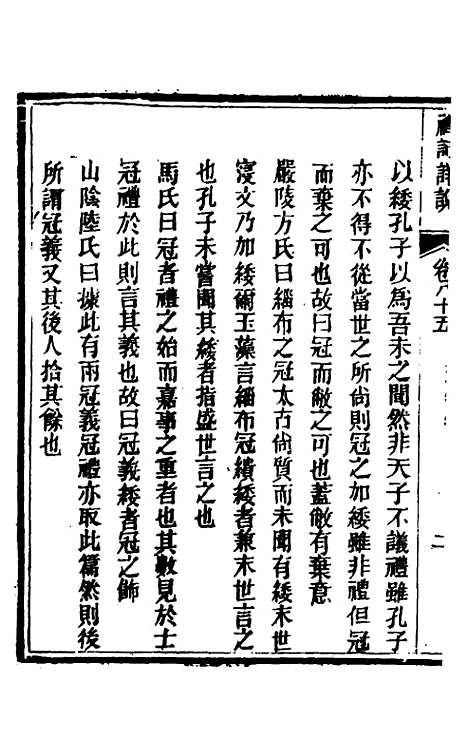 禮記集說
卷八十五
二
以緌孔子以爲吾未之聞然非天子不議禮雖孔子
亦不得不從當世之所尙則冠之加緌雖非禮但冠
而棄之可也故曰冠而敝之可也蓋敝有棄意
嚴陵方氏曰緇布之冠太古尙質而未聞有緌末世
寖文乃加緌爾玉藻言緇布冠繢緌者兼末世言之
也孔子未嘗聞其緌者指盛世言之也
馬氏曰冠者禮之始而嘉事之重者也其數見於士
冠禮於此則言其義也故曰冠義緌者冠之飾
山陰陸氏曰據此有兩冠義冠禮亦取此篇然則後
所謂冠義又其後人拾其餘也